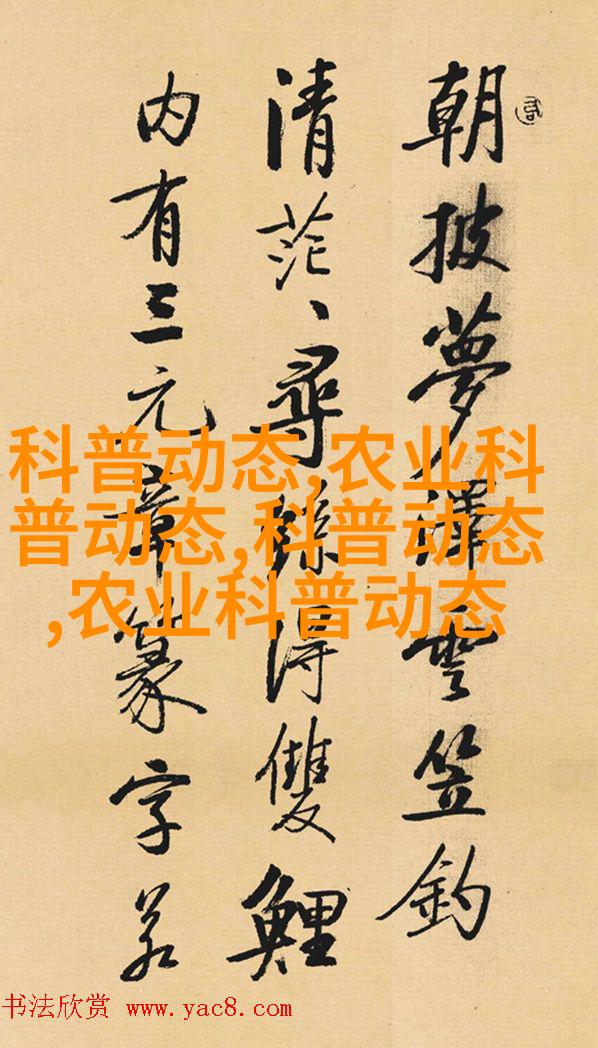 朝披夢澤雲笠釣
清茫、尋絲得雙鯉
内有三元章篆字若
科普动态,农业科
普动态,科普动态
,农业科普动态
书法欣赏 www.yac8.com